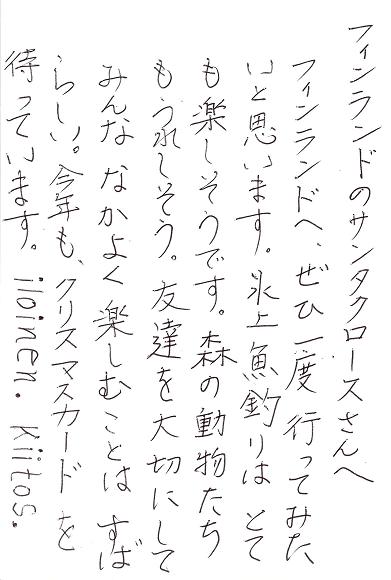 フィンランドのサンタクロースさんへ
フィンランドへ、ぜひ一度行ってみた
いと思います。氷上魚釣りはとて
も楽しそうです。森の動物たち
もうれしそう。友達を大切にして
みんななかよく楽しむことはすば
らしい。今年も、クリスマスカードを
待っています。iloinen. Kiitos.